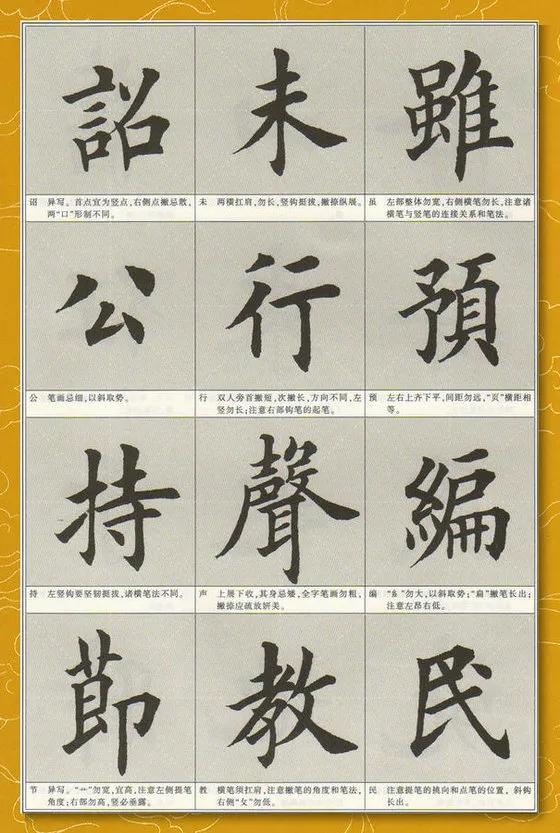 詔
未
雖
诏 异写。首点宜为竖点,右侧点撇忌散,
两“口”形制不同。
未 两横扛肩,勿长,竖钩挺拔,撇捺纵展。
虽 左部整体勿宽,右侧横笔勿长,注意诸
横笔与竖笔的连接关系和笔法。
公
行
預
公 笔画忌细,以斜取势。
行 双人旁首撇短,次撇长,方向不同,左
竖勿长;注意右部钩笔的起笔。
预 左右上齐下平,间距勿远,“页”横距相
等。
持
聲
編
持 左竖钩要坚韧挺拔,诸横笔法不同。
声 上展下收,其身忌矮,全字笔画勿粗,
撇捺应疏放妍美。
编 “糹”勿大,以斜取势;“扁”撇笔长出;
注意左昂右低。
節
教
民
节 异写。“艹”勿宽,宜高,注意左侧提笔
角度;右部勿高,竖必垂露。
教 横笔须扛肩,注意撇笔的角度和笔法,
右侧“攵”勿低。
民 注意提笔的挑向和点笔的位置,斜钩
长出。